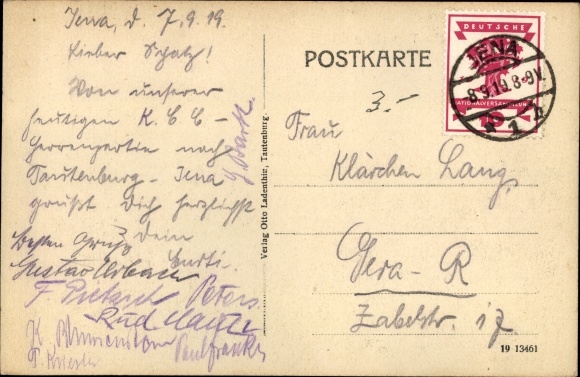 Jena, d. 7.9.19.
Lieber Schatz!
Von unserer
heutigen K. C. C. -
Herrenpartie nach
Tautenburg - Jena
grüßt Dich herzlichst
Dein
Curti.
Besten Gruß
Gustav Urbach
F. Pietzsch Peters
Rud
Paul Franke
Verlag Otto Ladenthin, Tautenburg.
POSTKARTE
DEUTSCHE
NATIONALVERSAMMLUNG
10
JENA
8.9.19.8-9V.
1
3.-
Frau
Klärchen Lang,
Gera - R
Zabelstr. 17
19 13461